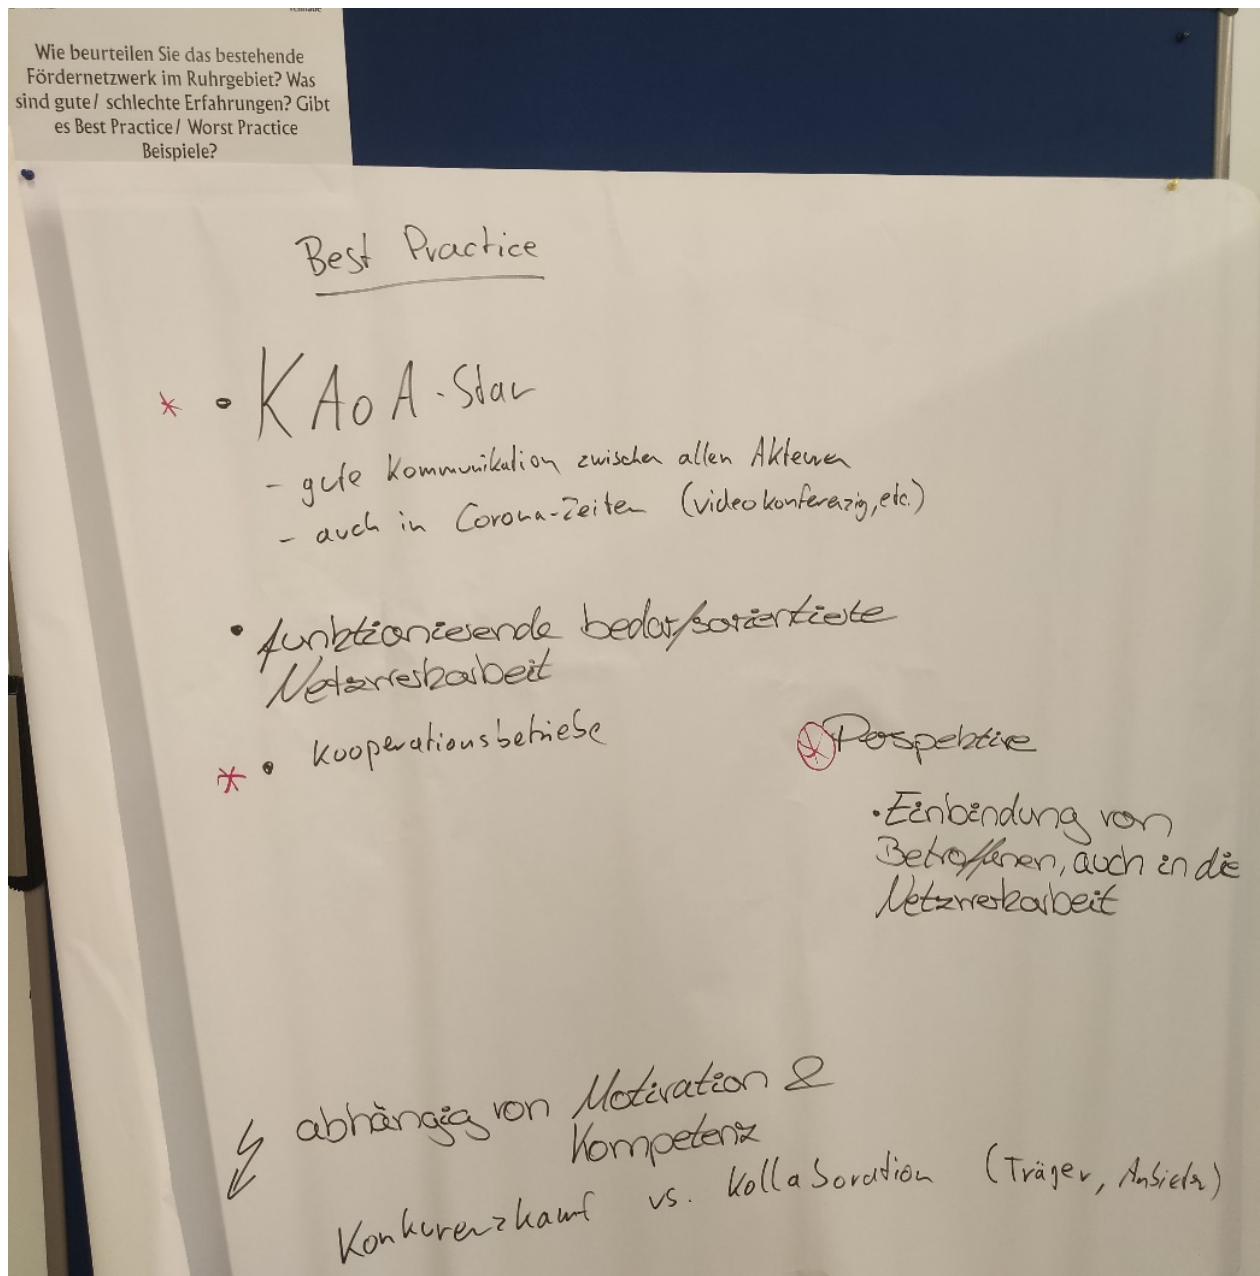 Wie beurteilen Sie das bestehende
Fördernetzwerk im Ruhrgebiet? Was
sind gute/ schlechte Erfahrungen? Gibt
es Best Practice/ Worst Practice
Beispiele?
Best Practice
* • KAoA-Star
- gute Kommunikation zwischen allen Akteuren
- auch in Corona-Zeiten (videokonferenzig, etc.)
• funktionierende bedarfsorientierte
Netzwerkarbeit
* • Kooperationsbetriebe
* Perspektive
• Einbindung von
Betroffenen, auch in die
Netzwerkarbeit
abhängig von Motivation &
Kompetenz
Konkurenzkamf vs. Kollaboration (Träger, Anbieter)